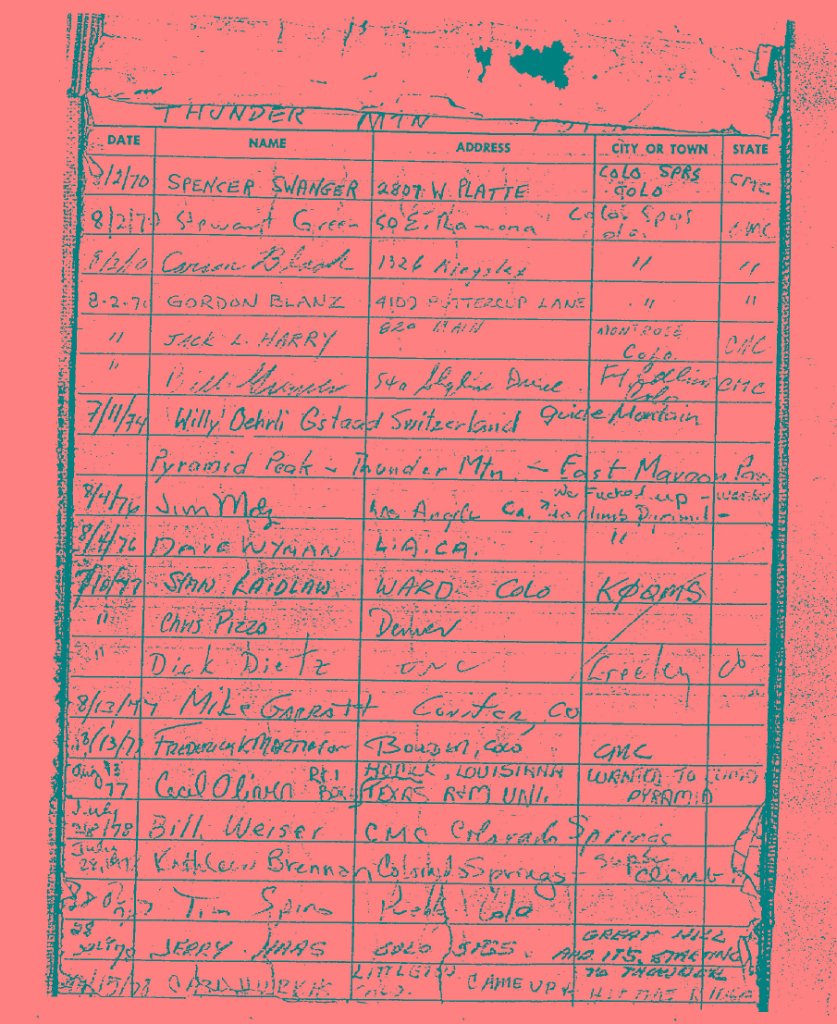 THUNDER MTN
DATE NAME ADDRESS CITY OR TOWN STATE
8/2/70 SPENCER SWANGER 2807 W. PLATTE COLO SPRS COLO CMC
8/2/70 Stewart Green 50 E. Ramona Colo. Spgs Colo. CMC
8/2/70 Carson Black 1326 Kingsley " "
8-2-70 GORDON BLANZ 4107 BUTTERCUP LANE " "
" JACK L. HARRY 620 MAIN MONTROSE Colo. CMC
" Bill 540 Skyline Drive Ft Collins Colo CMC
7/11/74 Willy Oehrli Gstaad Switzerland guide Montain
Pyramid Peak - Thunder Mtn. - East Maroon Pass
8/4/76 Jim Los Angeles Ca. We Fucked up - wanted
in climb Pyramid -
8/4/76 DAVE WYMAN L.A. CA. "
7/10/77 STAN LAIDLAW WARD COLO KØQMS
" Chris Pizzo Denver
" Dick Dietz UNC Greeley Co
8/13/77 Mike GARRATT Conifer, CO
8/13/77 FREDERICK BOULDER, COLO CMC
Aug 13 77 Cecil Oliver RT. 1 HOMER, LOUISIANA WANTED TO CLIMB
TEXAS A&M UNI. PYRAMID
July 28/78 Bill Weiser CMC Colorado Springs
July 28, 1978 Kathleen Brennan Colorado Springs - super climb
Tim Spino Pueblo Colo
28 JERRY HAAS COLO SPGS. GREAT HILL
AND ITS STARTING
TO THUNDER
LITTLETON COLO. CAME UP